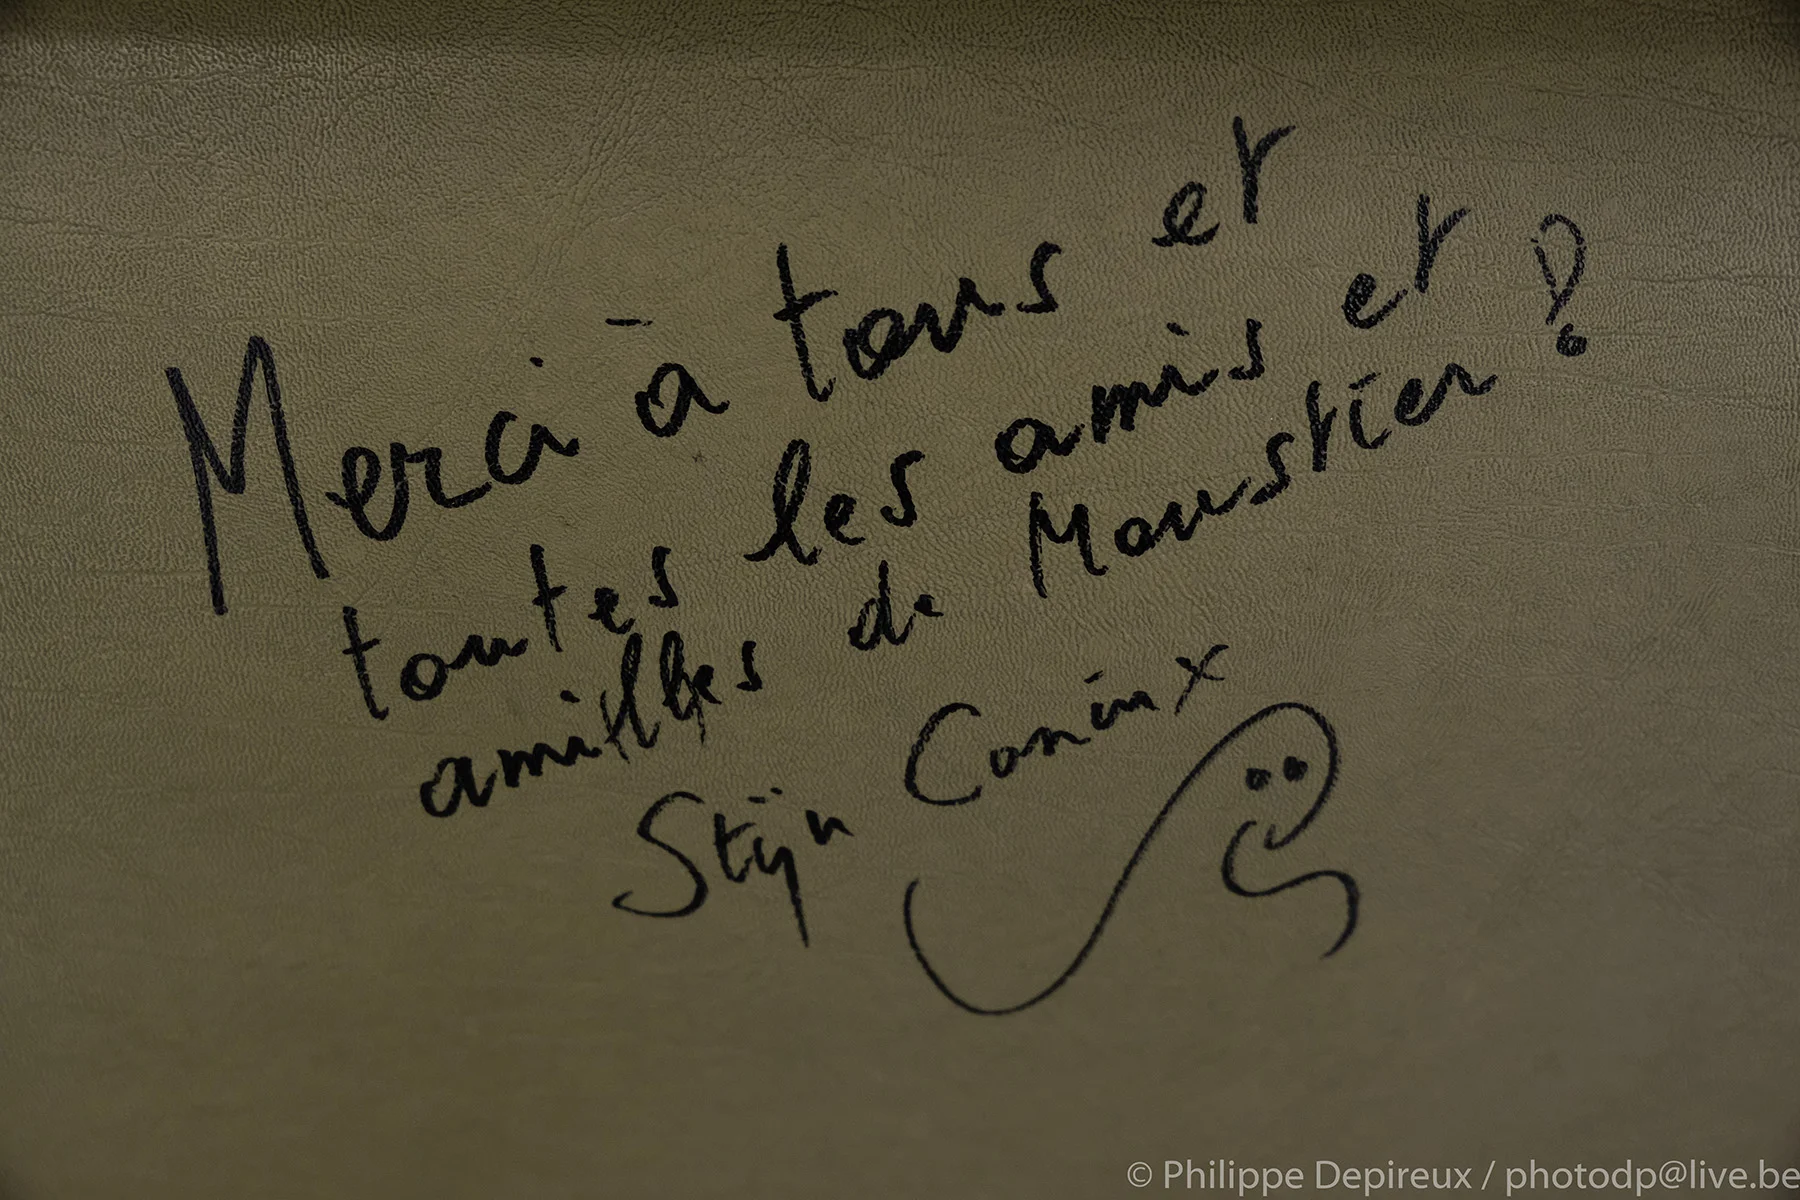 Merci à tous et
toutes les amis et
amilles de Moustier !
Stijn Coninx
© Philippe Depireux / photodp@live.be